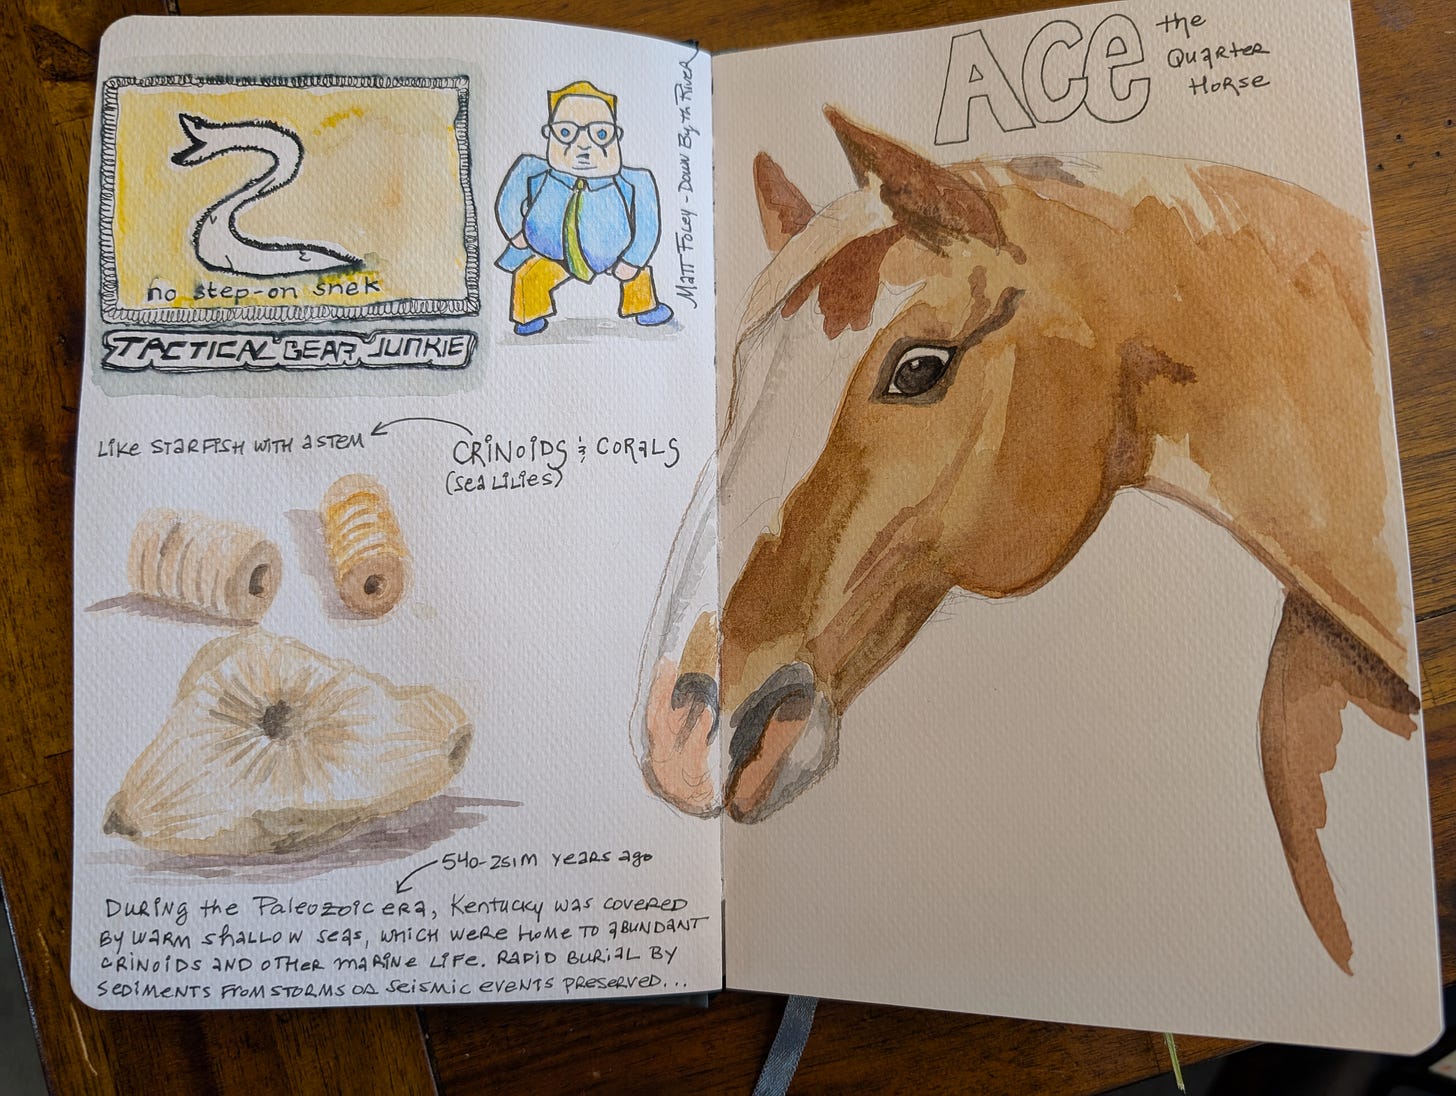 no step-on snek
TACTICAL GEAR JUNKIE
Matt Foley - Down By th River
Like starfish with a stem
CRINOIDS & CORALS
(sea lilies)
540-251M years ago
During the Paleozoic era, Kentucky was covered
by warm shallow seas, which were home to abundant
crinoids and other marine life. Rapid burial by
sediments from storms or seismic events preserved...
ACE
the
Quarter
Horse